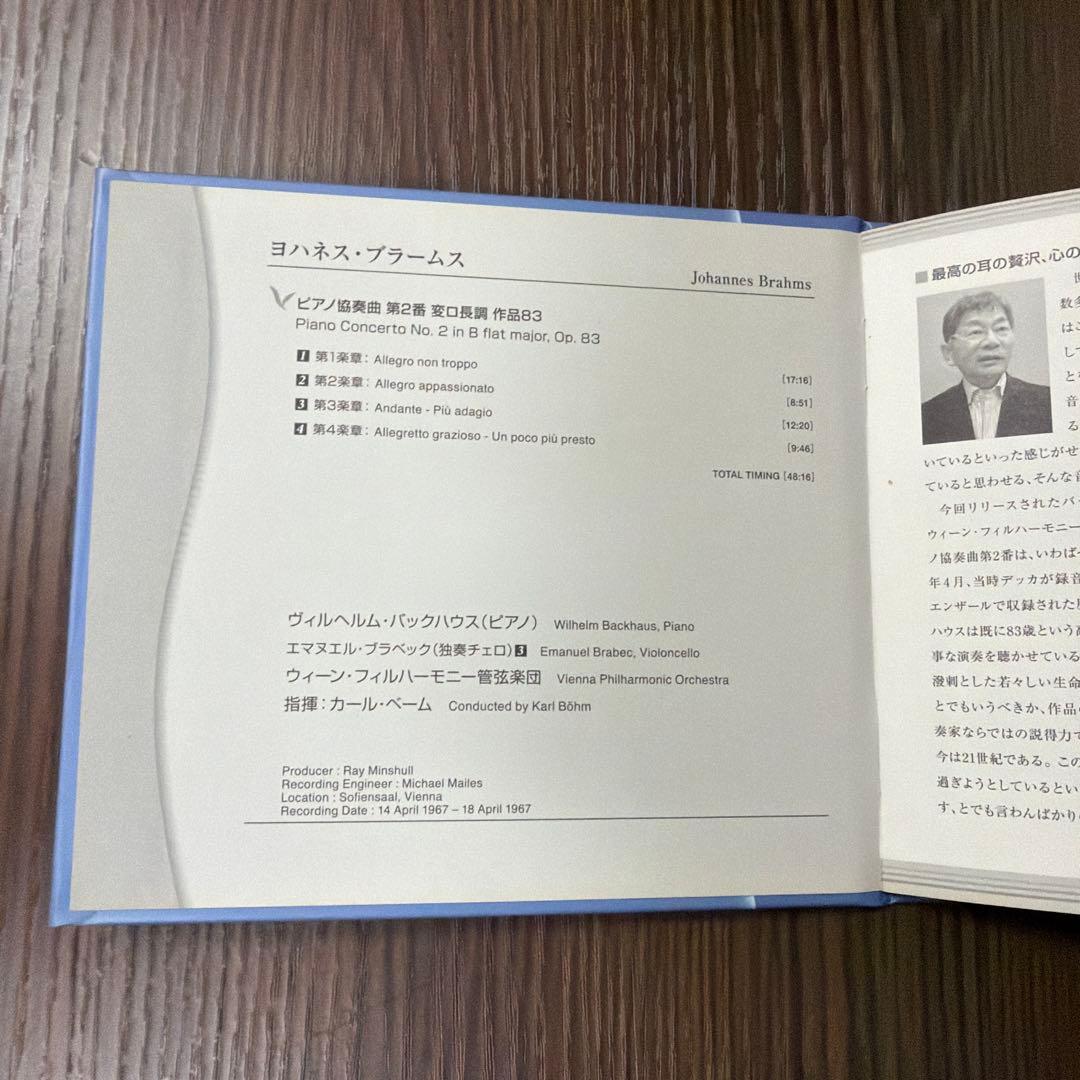 ヨハネス・ブラームス
Johannes Brahms
ピアノ協奏曲 第2番 変ロ長調 作品83
Piano Concerto No. 2 in B flat major, Op. 83
1 第1楽章: Allegro non troppo [17:16]
2 第2楽章: Allegro appassionato [8:51]
3 第3楽章: Andante - Più adagio [12:20]
4 第4楽章: Allegretto grazioso - Un poco più presto [9:46]
TOTAL TIMING [48:16]
ヴィルヘルム・バックハウス(ピアノ) Wilhelm Backhaus, Piano
エマヌエル・ブラベック(独奏チェロ)3 Emanuel Brabec, Violoncello
ウィーン・フィルハーモニー管弦楽団 Vienna Philharmonic Orchestra
指揮:カール・ベーム Conducted by Karl Böhm
Producer : Ray Minshull
Recording Engineer : Michael Mailes
Location : Sofiensaal, Vienna
Recording Date : 14 April 1967 – 18 April 1967
■最高の耳の贅沢、心の
世
数多
はこ
して
とな
音
る
いているといった感じがせ
ていると思わせる、そんな音
今回リリースされたバッ
ウィーン・フィルハーモニー
ノ協奏曲第2番は、いわば
年4月、当時デッカが録音
エンザールで収録された
ハウスは既に83歳という高
事な演奏を聴かせている
溌剌とした若々しい生命
とでもいうべきか、作品
奏家ならではの説得力で
今は21世紀である。この
過ぎようとしているとい
す、とでも言わんばかり